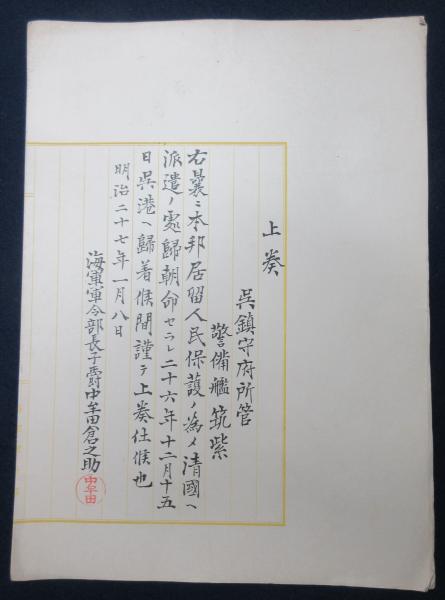 上奏
呉鎮守府所管
警備艦筑紫
右曩ニ本邦居留人民保護ノ為メ清國ヘ
派遣ノ處歸朝命セラレ二十六年十二月十五
日呉港ヘ歸着候間謹テ上奏仕候也
明治二十七年一月八日
海軍軍令部長子爵中牟田倉之助
中牟田